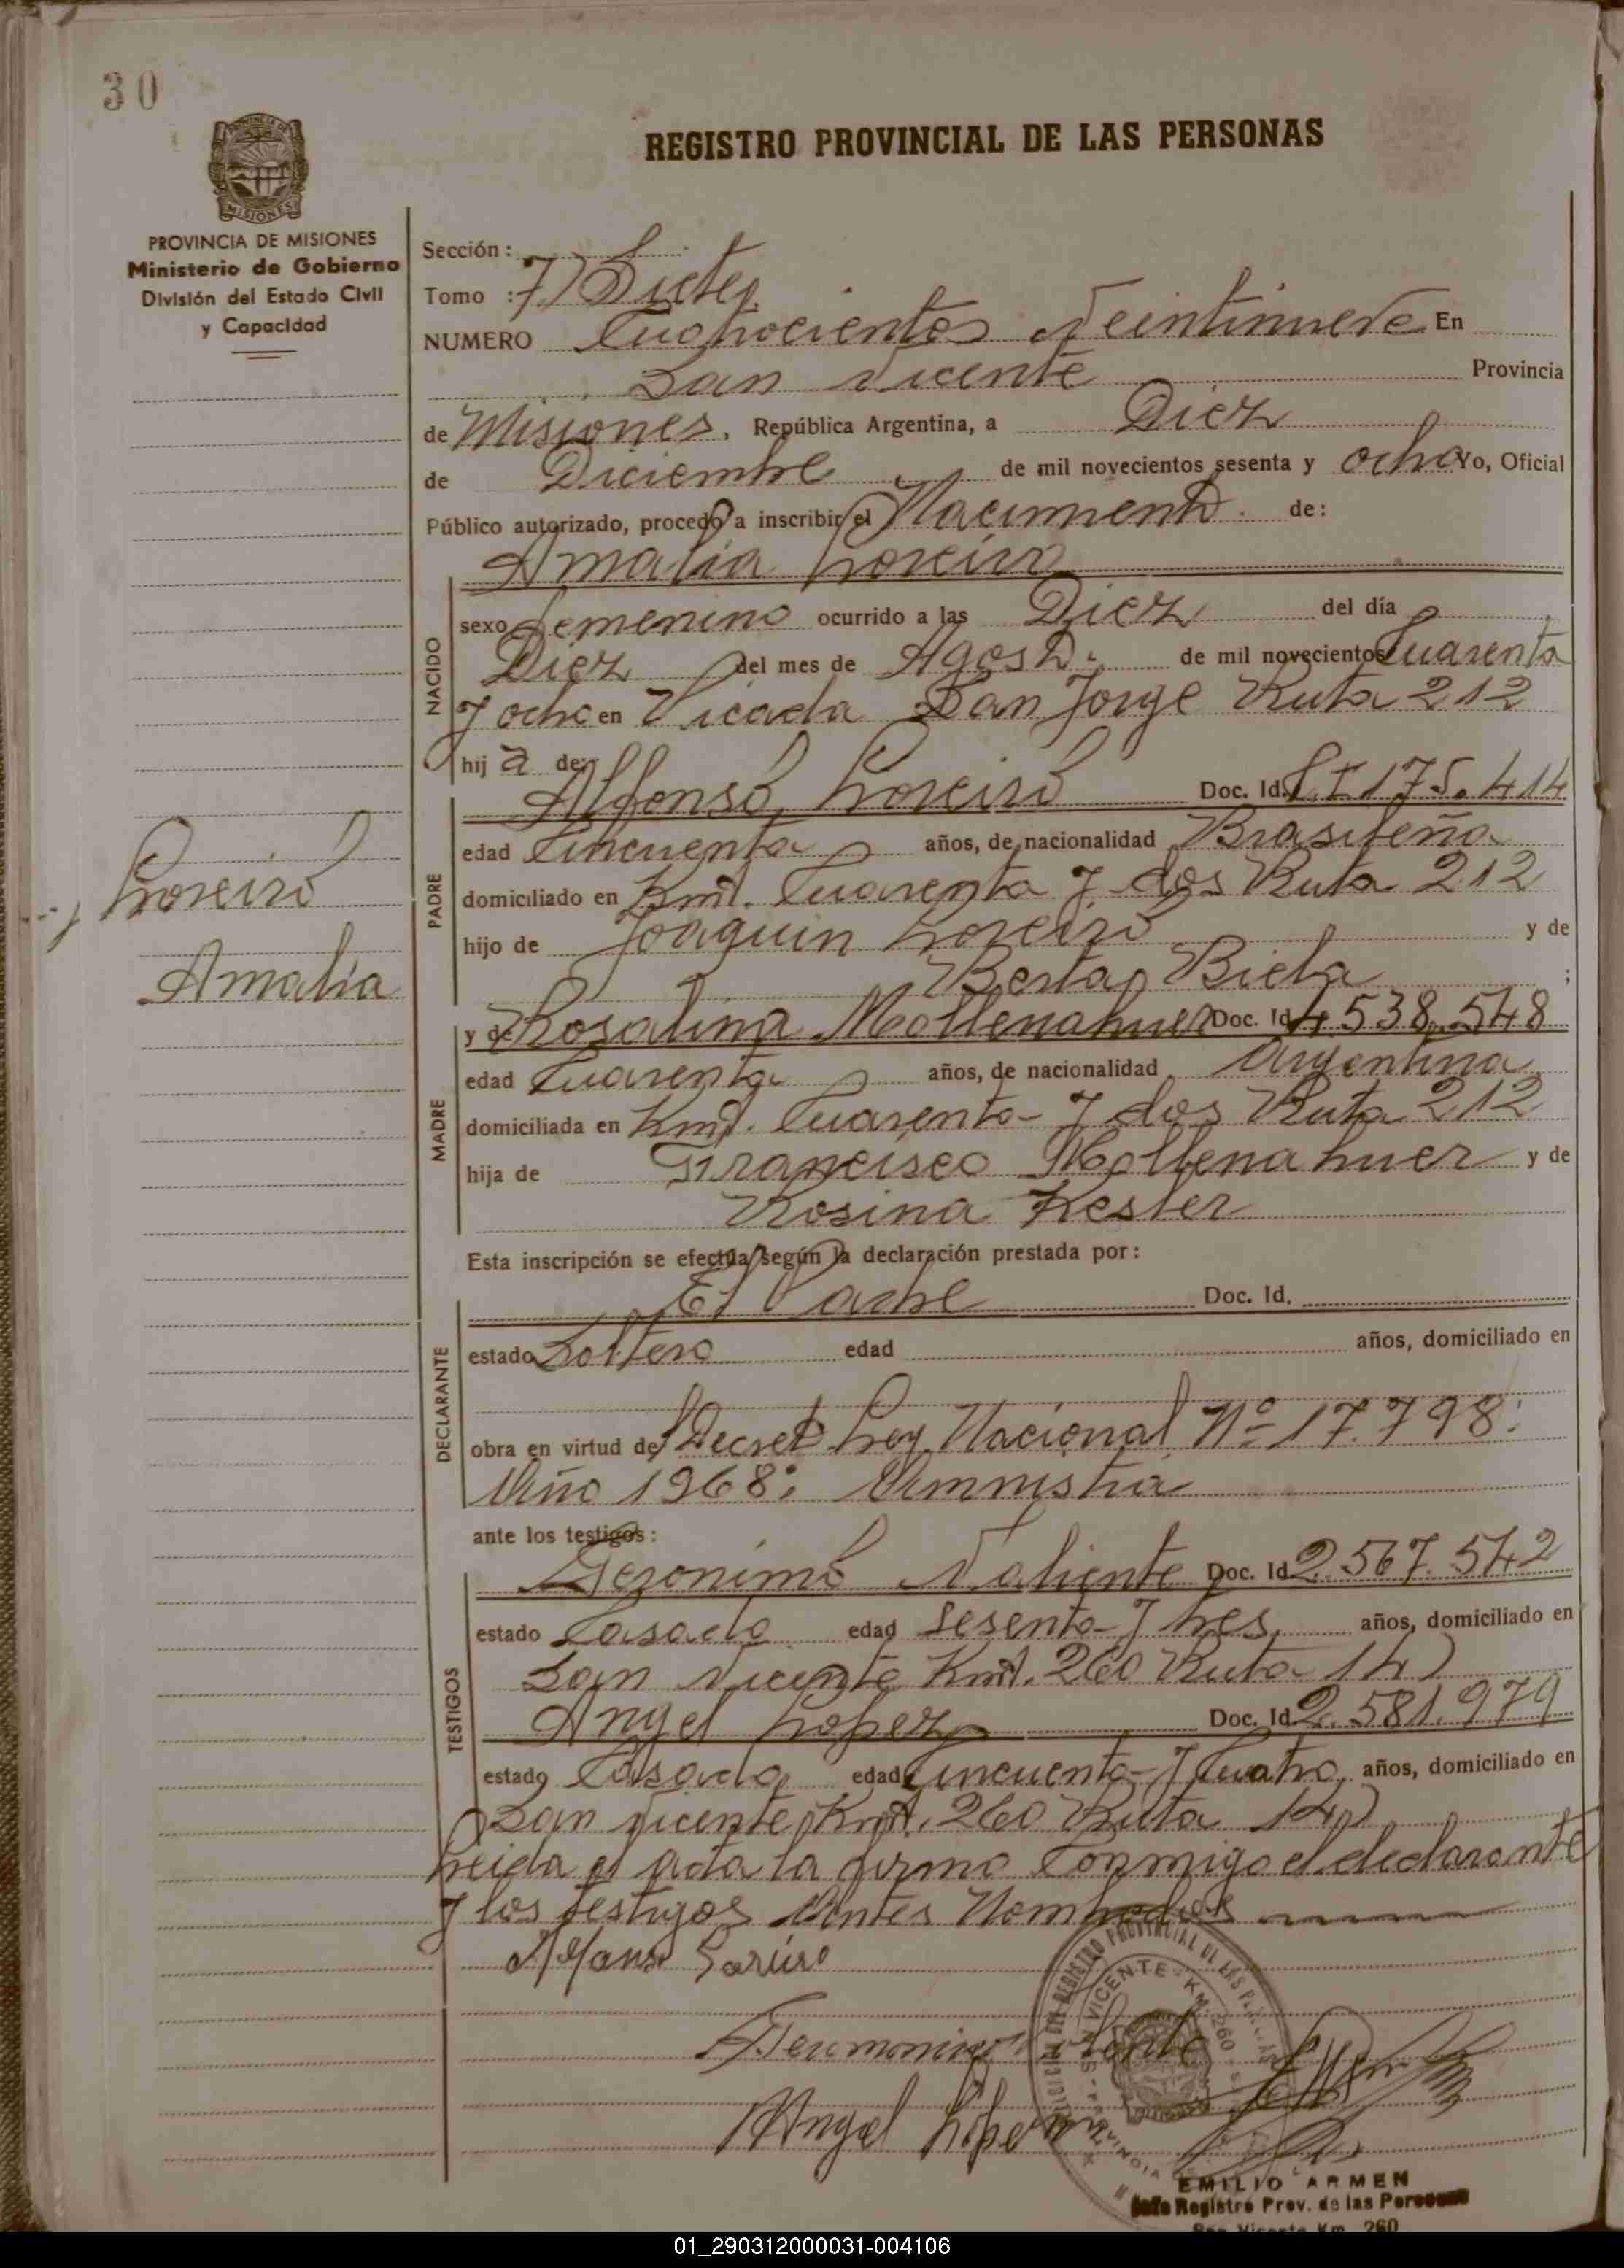 30
PROVINCIA DE
MISIONES
PROVINCIA DE MISIONES
Ministerio de Gobierno
División del Estado Civil
y Capacidad
REGISTRO PROVINCIAL DE LAS PERSONAS
Sección :
Tomo : 7) Siete)
NUMERO Cuatrocientos Veintinueve En
San Vicente Provincia
de Misiones, República Argentina, a Diez
de Diciembre de mil novecientos sesenta y ocho Yo, Oficial
Público autorizado, procedo a inscribir el Nacimiento de:
Amalia Loreiro
NACIDO
sexo Femenino ocurrido a las Diez del día
Diez del mes de Agosto de mil novecientos Cuarenta
y ocho en Picada San Jorge Ruta 212
hij a de:
Alfonso Loreiro Doc. Id. C.I 175.414
PADRE
edad Cincuenta años, de nacionalidad Brasileña
domiciliado en Kmt. Cuarenta y dos Ruta 212
hijo de Joaquin Loreiro y de
Berta Biela ;
Loreiro
Amalia
y de Rosalina Mollenahuer Doc. Id 4538.548
MADRE
edad Cuarenta años, de nacionalidad Argentina
domiciliada en Kmt. Cuarenta y dos Ruta 212
hija de Francisco Mollenahuer y de
Rosina Kester
Esta inscripción se efectúa según la declaración prestada por :
DECLARANTE
El Padre Doc. Id.
estado Soltero edad años, domiciliado en
obra en virtud de Decreto Ley Nacional Nº 17.798:
Año 1968: Amnistia
ante los testigos :
TESTIGOS
Geronimo Valiente Doc. Id 2.567.542
estado Casado edad Sesenta y tres años, domiciliado en
San Vicente Kmt. 260 Ruta 14)
Angel Lopez Doc. Id. 2.581.979
estado Casado edad Cincuenta y Cuatro años, domiciliado en
San Vicente Kmt. 260 Ruta 14)
Leida el acta la firma Conmigo el declarante
y los testigos Antes Nombrados
Alfonso
Angel Lopez
REGISTRO PROVINCIAL DE LAS
VICENTE - KM. 260
EMILIO ARMEN
Jefe Registro Prov. de las Personas
San Vicente Km. 260
01_290312000031-004106